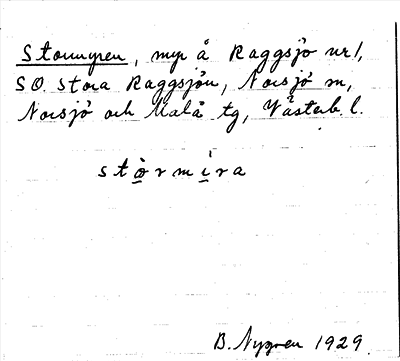 Stormyren, myr å Raggsjö nr 1,
SO. Stora Raggsjön, Norsjö sn,
Norsjö och Malå tg, Västerb. l.
stòrmìra
B. Nygren 1929.